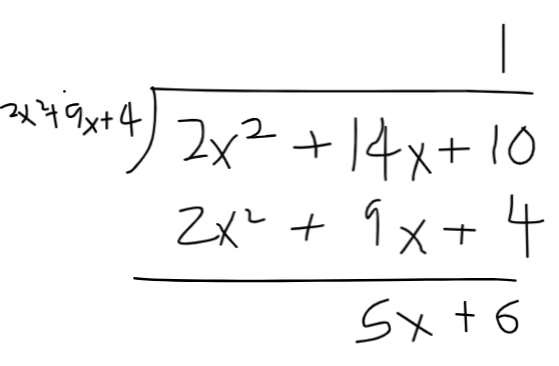 1
2x²+9x+4 ) 2x² + 14x + 10
2x² + 9x + 4
5x + 6